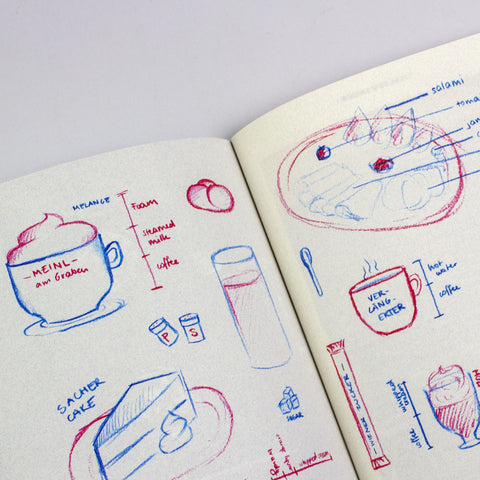 MELANGE
Foam
steamed
milk
coffee
—MEINL—
am Graben
P S
SACHER
CAKE
SUGAR
salami
hot
water
coffee
VER-
LÄNG-
ERTER
WIENER ZUCKER
whipped
cream
coffee